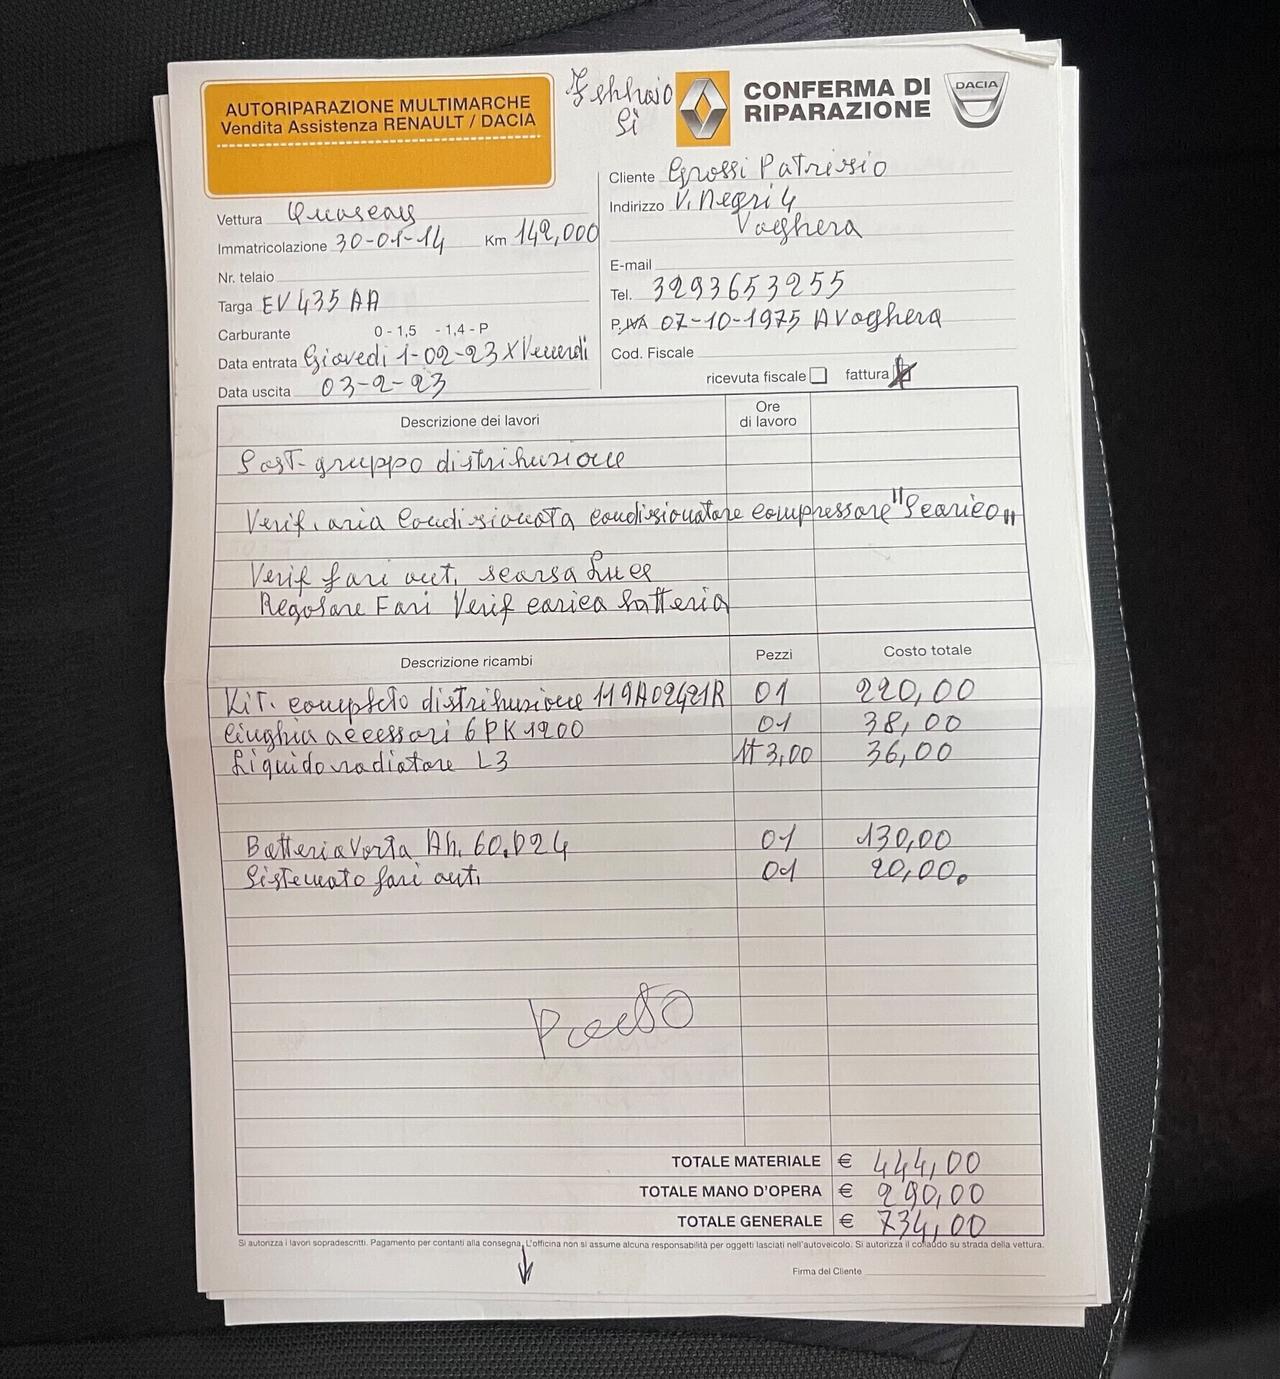 AUTORIPARAZIONE MULTIMARCHE
Vendita Assistenza RENAULT / DACIA
Febbraio
Si
CONFERMA DI
RIPARAZIONE
DACIA
Cliente Grossi Patrizio
Indirizzo V. Negri 4
Voghera
E-mail
Tel. 3293653255
P. IVA 07-10-1975 A Voghera
Cod. Fiscale
ricevuta fiscale fattura
Vettura
Immatricolazione 30-01-14 Km 142,000
Nr. telaio
Targa EV 435 AA
Carburante 0 - 1,5 - 1,4 - P
Data entrata Giovedi 1-02-23 X Venerdi
Data uscita 03-2-23
Descrizione dei lavori
Ore
di lavoro
Sost. gruppo distribuzione
Verif. aria Condizionata condizionatore compressore "Scarico"
Verif fari ant. scarsa Luce
Regolare Fari Verif carica batteria
Descrizione ricambi Pezzi Costo totale
Kit. completo distribuzione 119A02421R 01 220,00
Cinghia accessori 6PK1200 01 38,00
Liquido radiatore L3 3,00 36,00
Batteria Vorta Ah. 60.D24 01 130,00
Sistemato fari ant. 01 20,00
TOTALE MATERIALE € 444,00
TOTALE MANO D'OPERA € 290,00
TOTALE GENERALE € 734,00
Si autorizza i lavori sopradescritti. Pagamento per contanti alla consegna. L'officina non si assume alcuna responsabilità per oggetti lasciati nell'autoveicolo. Si autorizza il collaudo su strada della vettura.
Firma del Cliente